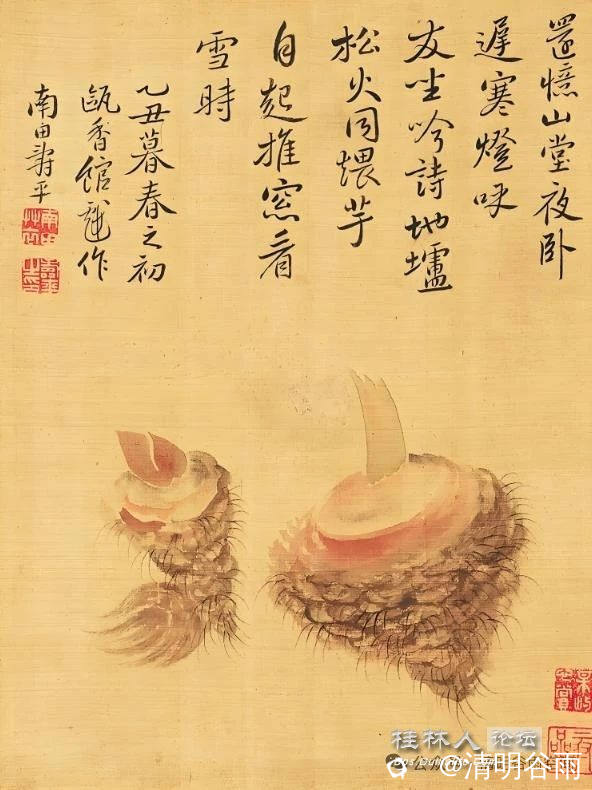 還憶山堂夜卧
遲寒燈呼
友坐吟詩地壚
松火同煨芋
自起推窓看
雪時
乙丑暮春之初
甌香館戲作
南田壽平
桂林人论坛
@清明谷雨